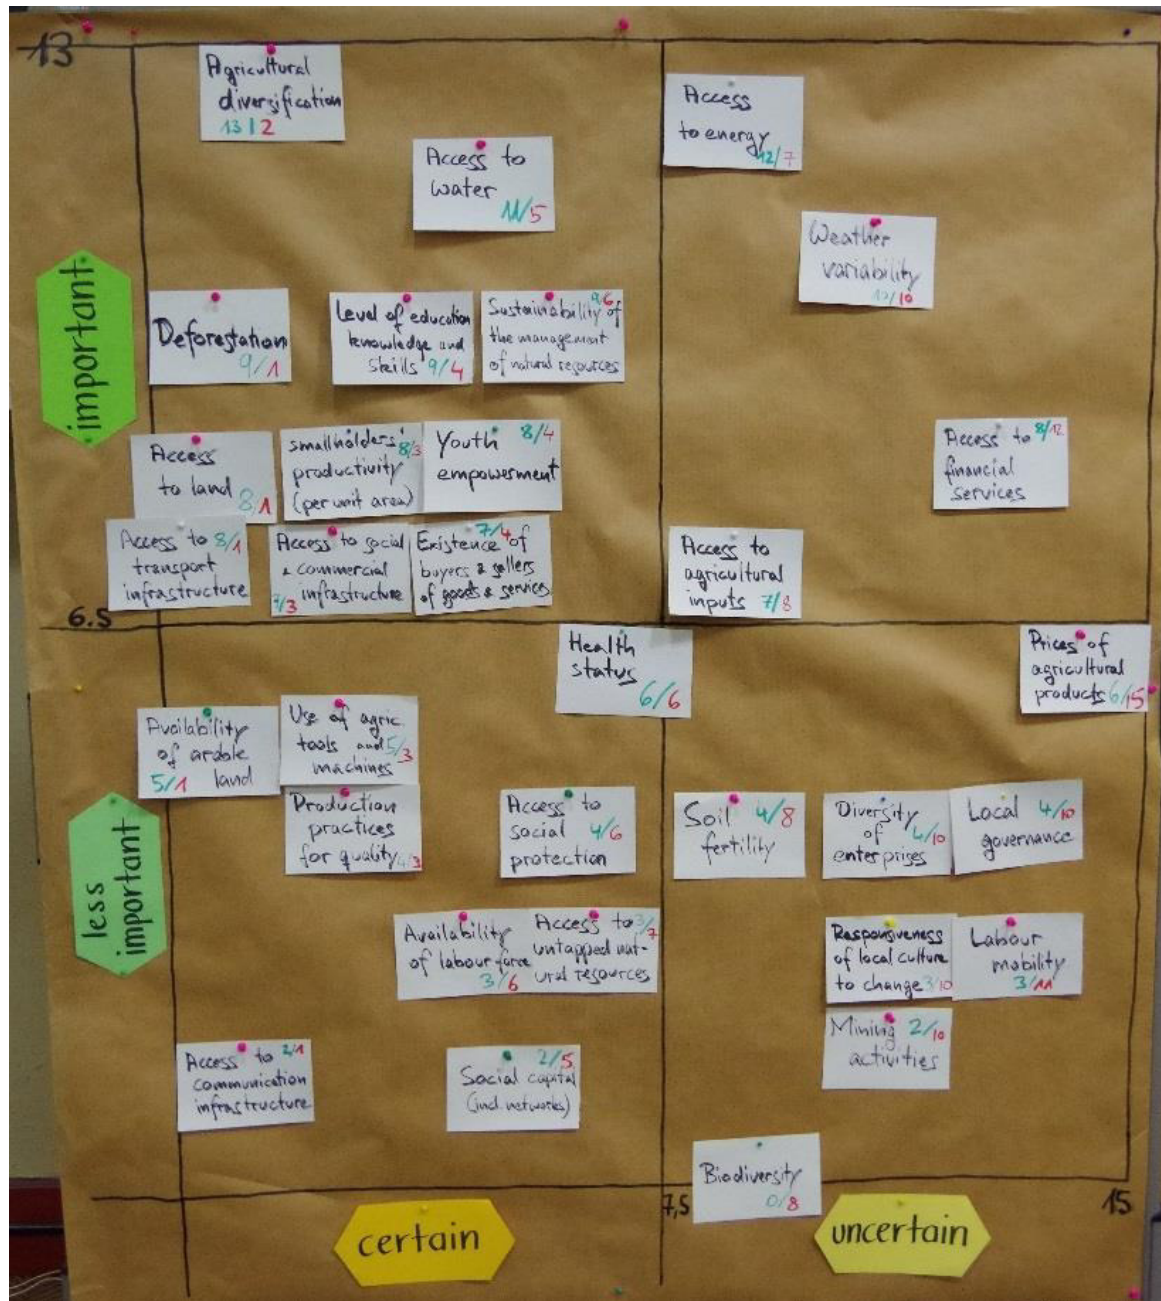 13
Agricultural
diversification
13/2
Access to
water
11/5
Access
to energy
12/7
Weather
variability
12/10
important
Deforestation
9/1
Level of education
knowledge and
skills 9/4
9/6
Sustainability of
the management
of natural resources
Access
to land 8/1
smallholders'
productivity 8/3
(per unit area)
Youth 8/4
empowerment
Access to 8/12
financial
services
Access to 8/1
transport
infrastructure
Access to social
& commercial
7/3 infrastructure
7/4
Existence of
buyers & sellers
of goods & services
Access to
agricultural
inputs 7/8
6.5
Health
status
6/6
Prices of
agricultural
products 6/15
Availability
of arable
5/1 land
Use of agric
tools and 5/3
machines
Production
practices
for quality 4/3
Access to
social 4/6
protection
Soil 4/8
fertility
Diversity
of 4/10
enterprises
Local 4/10
governance
less
important
Availability
of labour force
3/6
Access to 3/7
untapped nat-
ural resources
Responsiveness
of local culture
to change 3/10
Labour
mobility
3/11
Mining 2/10
activities
Access to 2/1
communication
infrastructure
2/5
Social capital
(incl. networks)
Biodiversity
0/8
7,5
15
certain
uncertain